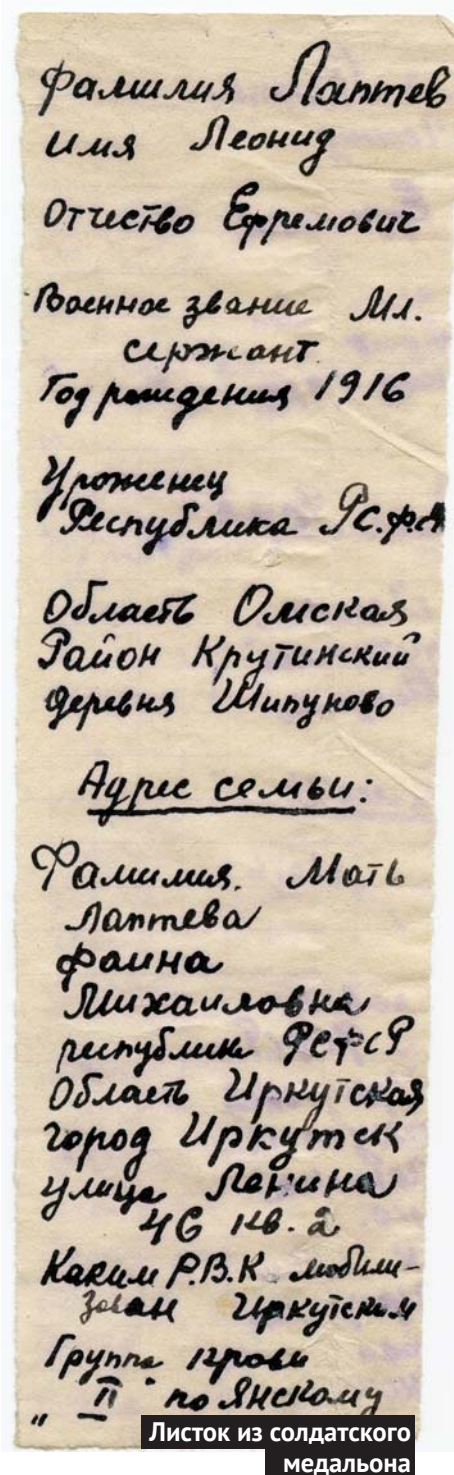 Фамилия Лаптев
имя Леонид
Отчество Ефремович
Военное звание Мл.
сержант
Год рождения 1916
Уроженец
Республика Р.С.Ф.С.Р
Область Омская
Район Крутинский
деревня Шипуново
Адрес семьи:
Фамилия. Мать
Лаптева
Фаина
Михайловна
республик РСФСР
Область Иркутская
город Иркутск
улица Ленина
46 кв. 2
Каким Р.В.К. мобили-
зован Иркутским
Группа крови
" II " по Янскому
Листок из солдатского
медальона